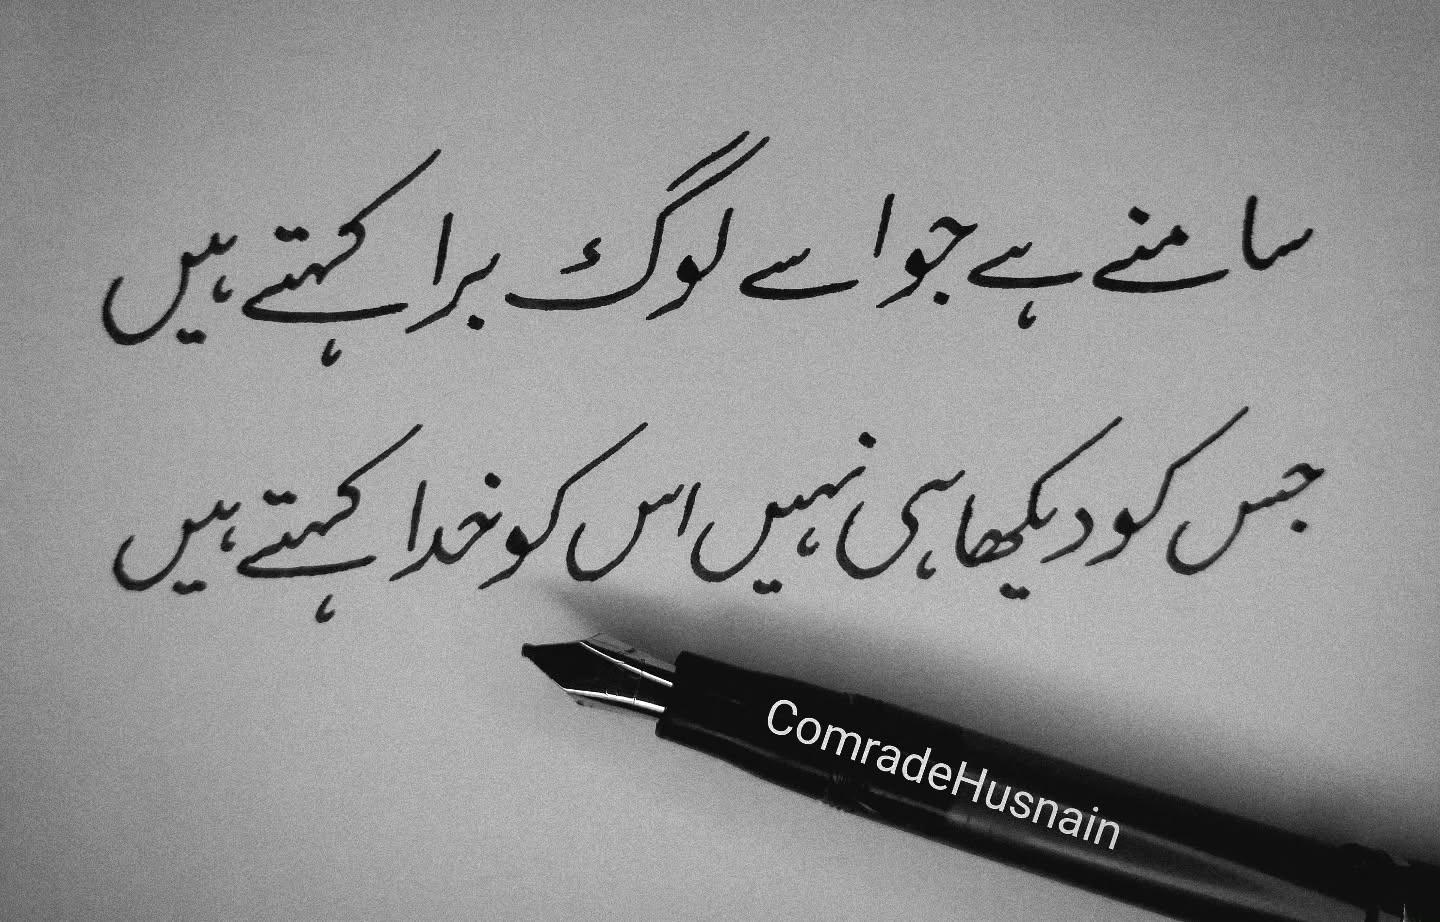 سامنے ہے جو اسے لوگ برا کہتے ہیں
جس کو دیکھا ہی نہیں اس کو خدا کہتے ہیں
ComradeHusnain